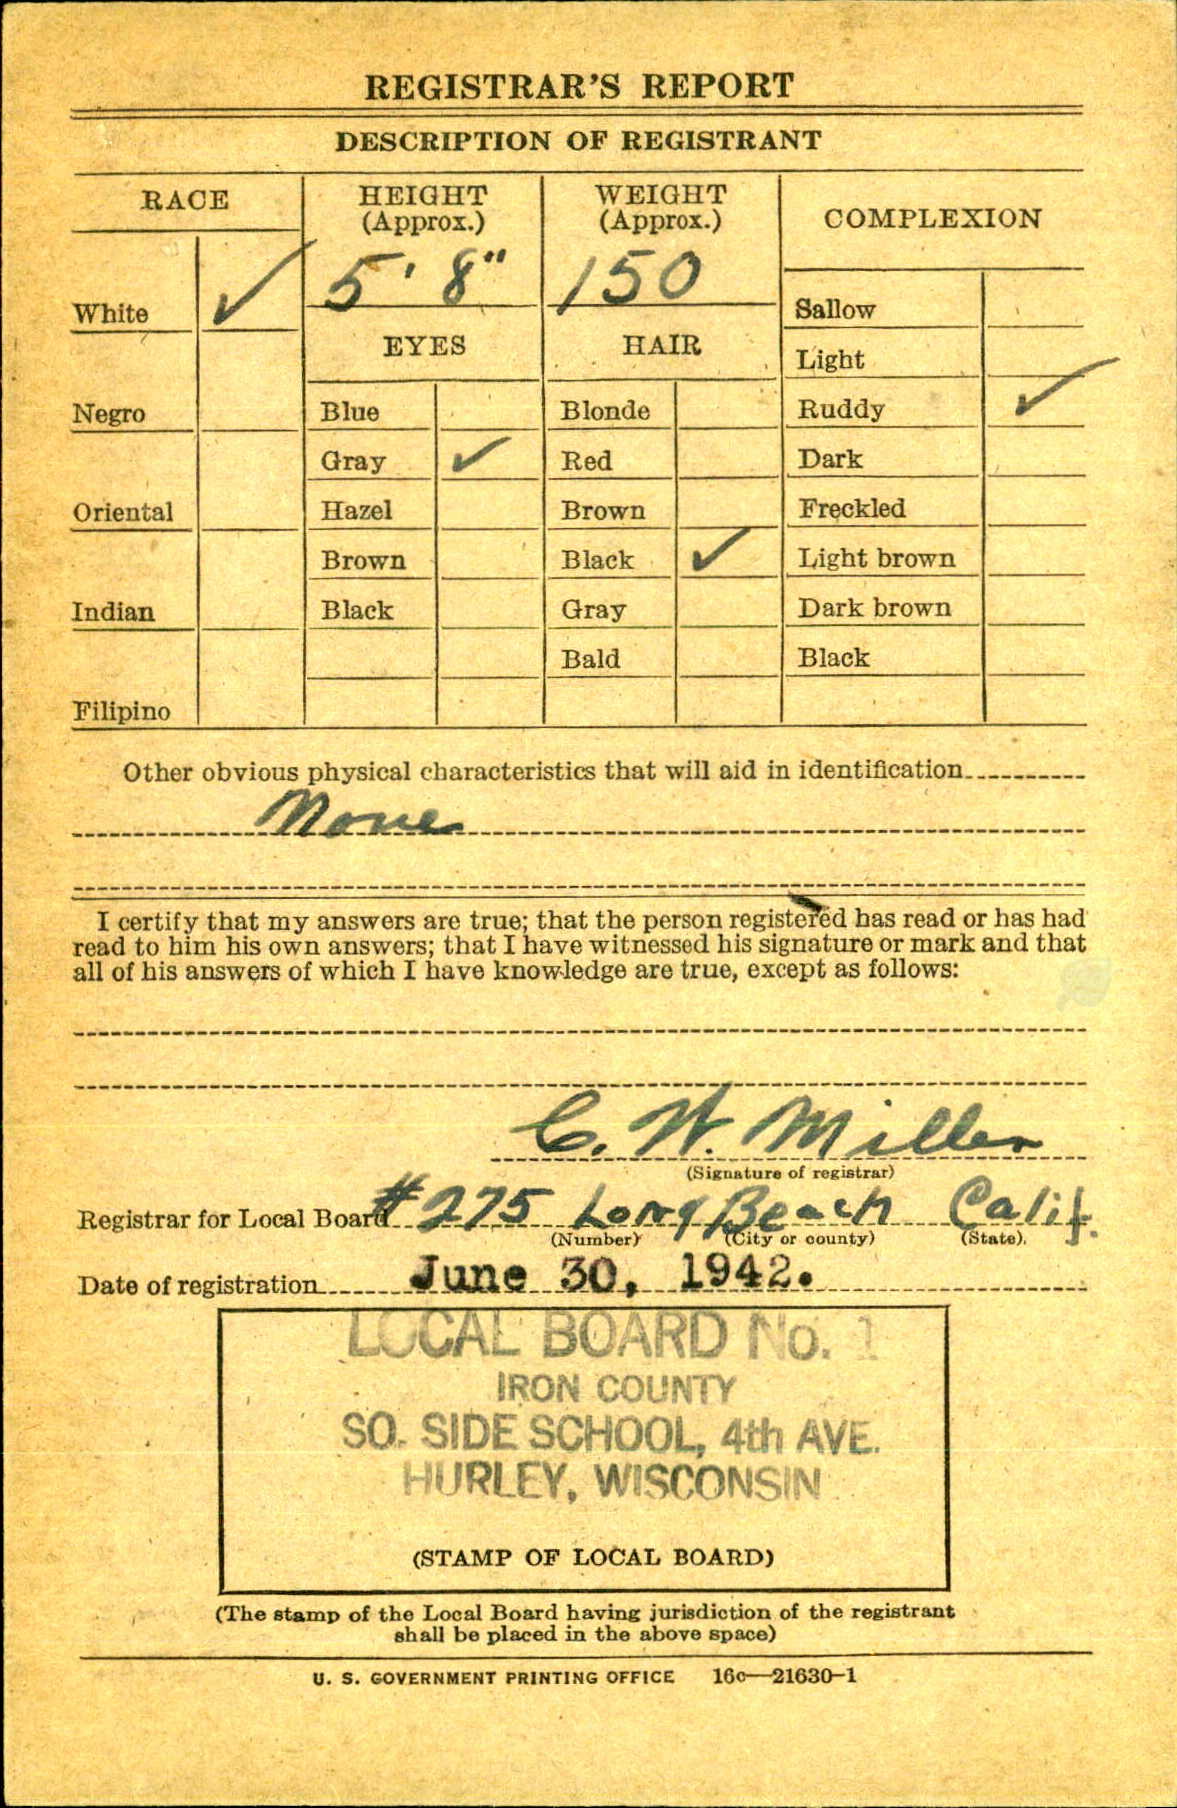 REGISTRAR'S REPORT
DESCRIPTION OF REGISTRANT
RACE
HEIGHT
(Approx.)
WEIGHT
(Approx.)
COMPLEXION
White ✓
5' 8"
150
Sallow
EYES
HAIR
Light
Negro
Blue
Blonde
Ruddy ✓
Gray ✓
Red
Dark
Oriental
Hazel
Brown
Freckled
Brown
Black ✓
Light brown
Indian
Black
Gray
Dark brown
Bald
Black
Filipino
Other obvious physical characteristics that will aid in identification
None
I certify that my answers are true; that the person registered has read or has had
read to him his own answers; that I have witnessed his signature or mark and that
all of his answers of which I have knowledge are true, except as follows:
C. W. Miller
(Signature of registrar)
Registrar for Local Board #275 Long Beach Calif.
(Number) (City or county) (State)
Date of registration June 30, 1942.
LOCAL BOARD No. 1
IRON COUNTY
SO. SIDE SCHOOL, 4th AVE.
HURLEY, WISCONSIN
(STAMP OF LOCAL BOARD)
(The stamp of the Local Board having jurisdiction of the registrant
shall be placed in the above space)
U. S. GOVERNMENT PRINTING OFFICE 16c—21630-1